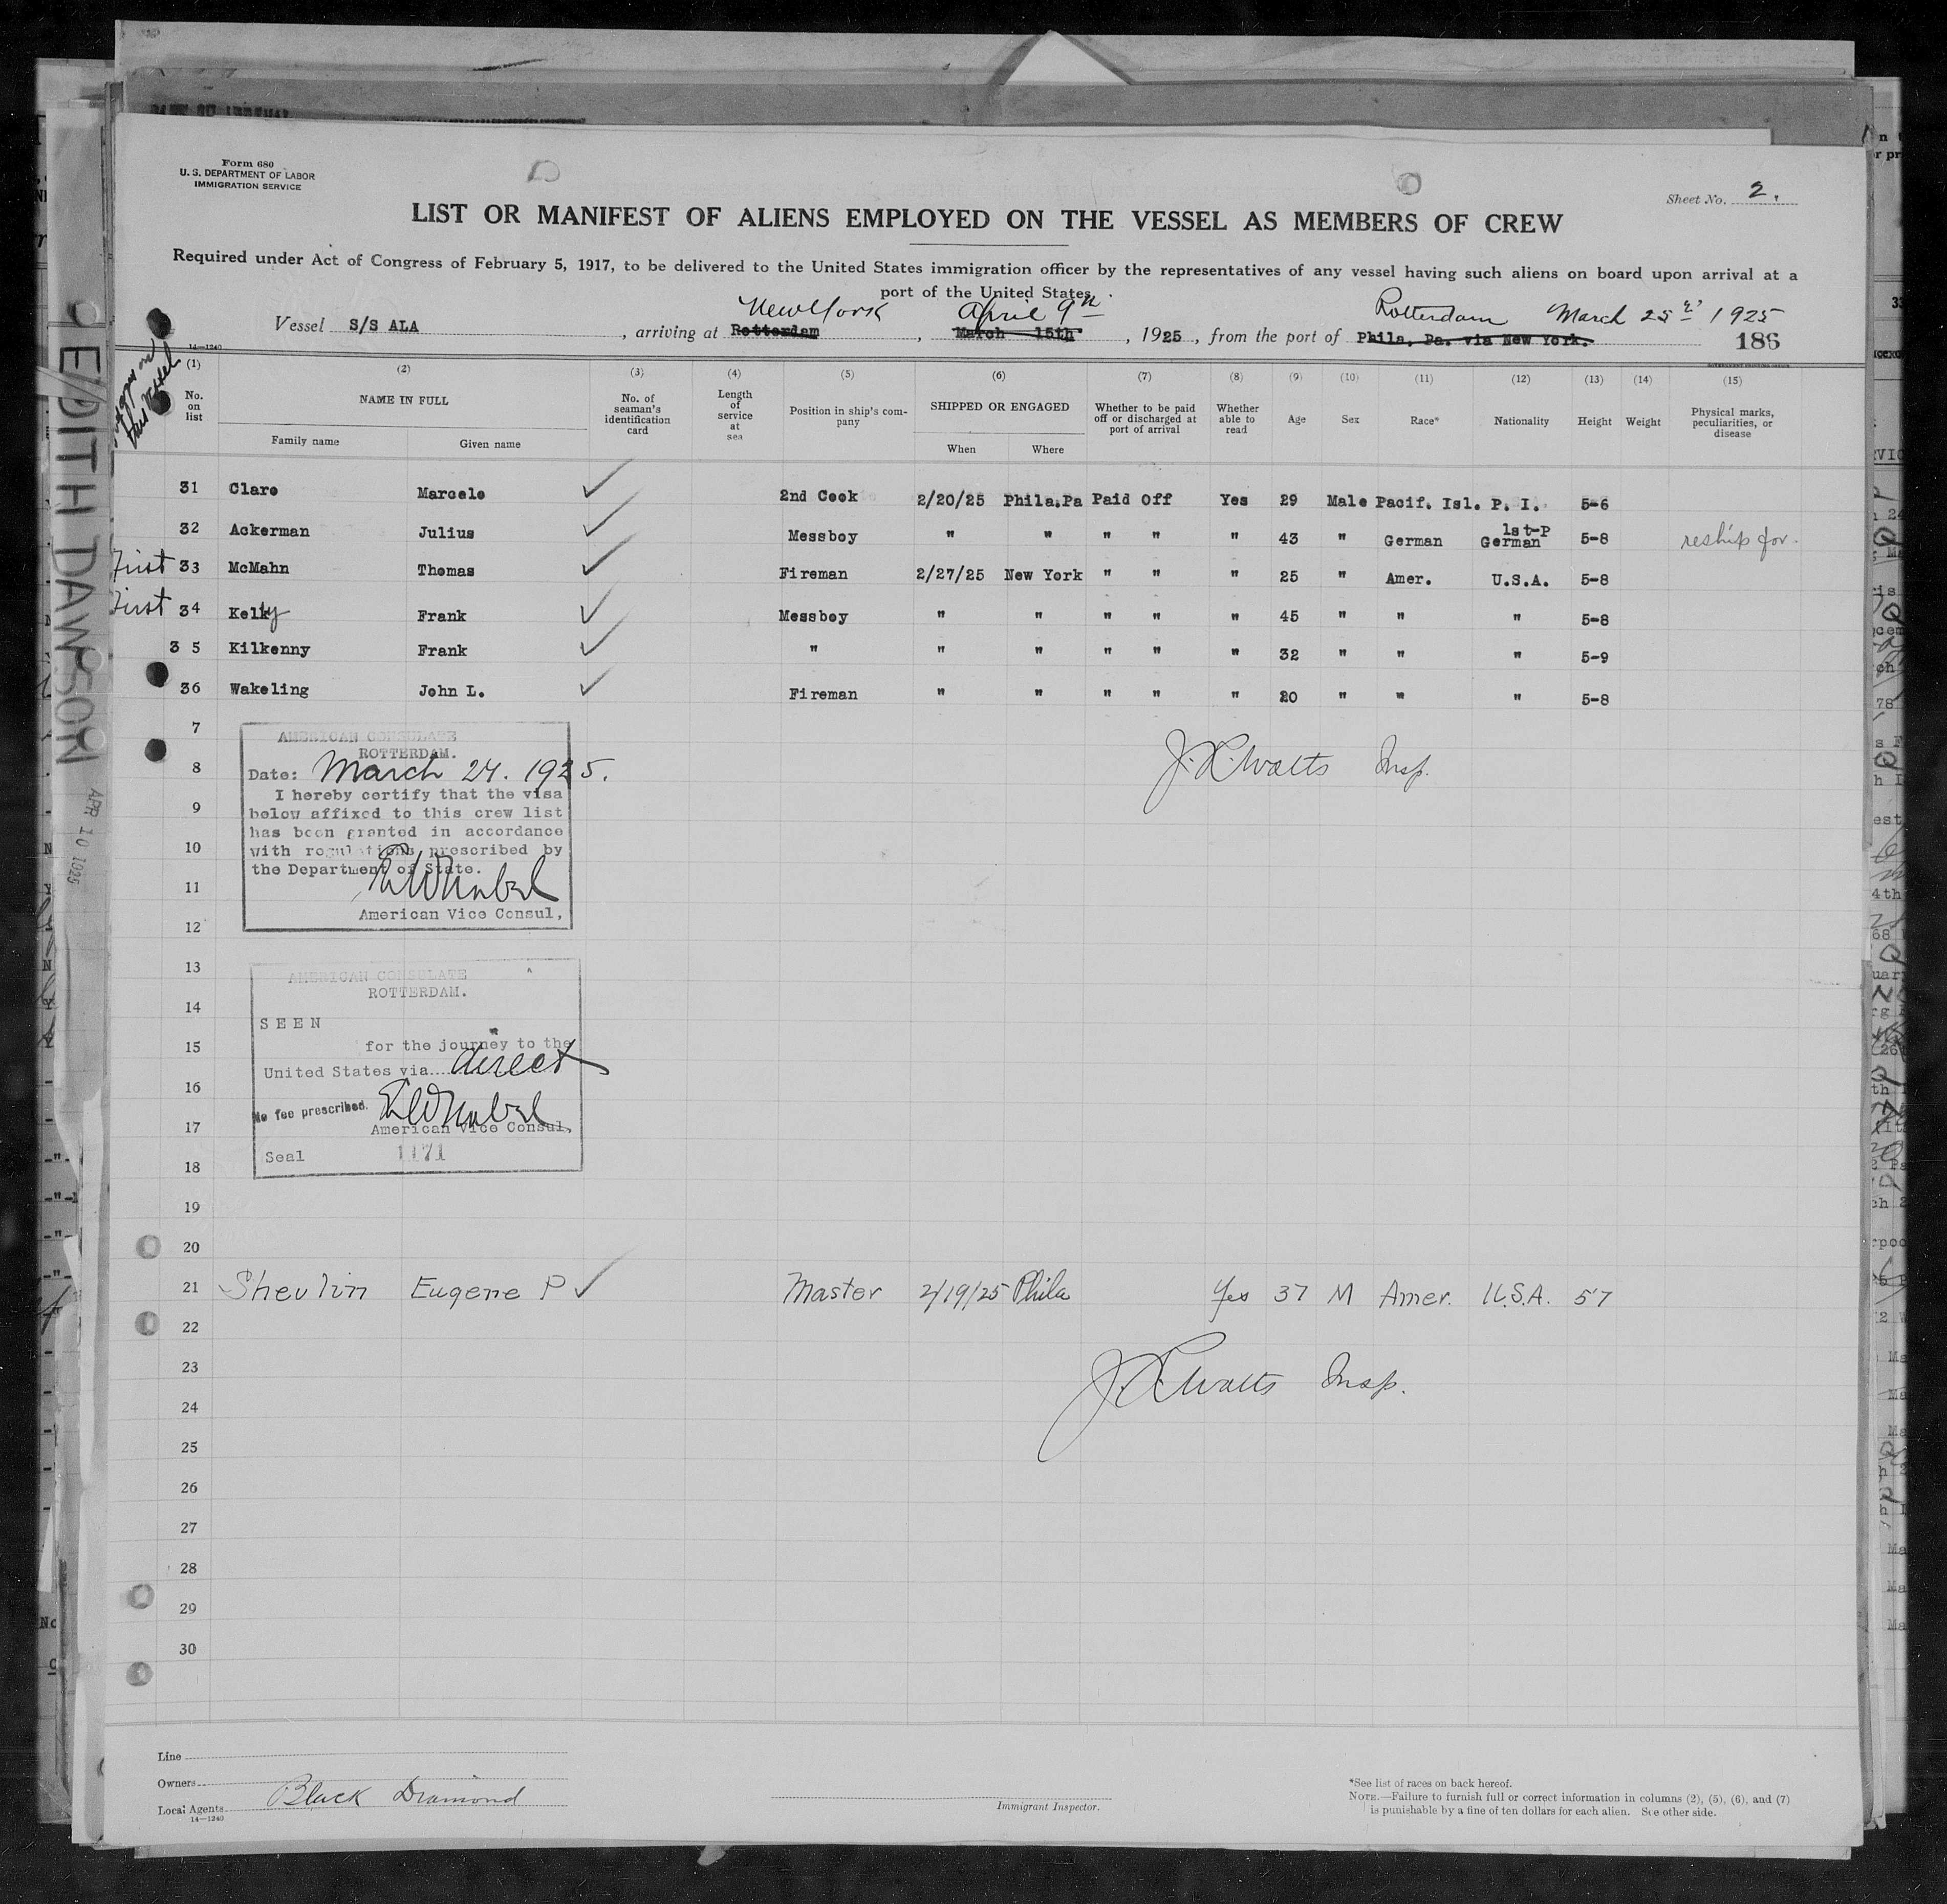 Form 680
U. S. DEPARTMENT OF LABOR
IMMIGRATION SERVICE
Sheet No. 2.
LIST OR MANIFEST OF ALIENS EMPLOYED ON THE VESSEL AS MEMBERS OF CREW
Required under Act of Congress of February 5, 1917, to be delivered to the United States immigration officer by the representatives of any vessel having such aliens on board upon arrival at a
port of the United States.
New York April 9th Rotterdam March 25 1925
Vessel S/S ALA , arriving at Rotterdam , March 15th , 1925 , from the port of Phila. Pa. via New York.
186
14-1240
(1) (2) (3) (4) (5) (6) (7) (8) (9) (10) (11) (12) (13) (14) (15)
No. on list
NAME IN FULL
Family name Given name
No. of seaman's identification card
Length of service at sea
Position in ship's company
SHIPPED OR ENGAGED
When Where
Whether to be paid off or discharged at port of arrival
Whether able to read
Age
Sex
Race*
Nationality
Height
Weight
Physical marks, peculiarities, or disease
31 Claro Marcelo ✓ 2nd Cook 2/20/25 Phila.Pa Paid Off Yes 29 Male Pacif. Isl. P. I. 5-6
1st-P
32 Ackerman Julius ✓ Messboy " " " " " 43 " German German 5-8 reship for.
First 33 McMahn Thomas ✓ Fireman 2/27/25 New York " " " 25 " Amer. U.S.A. 5-8
First 34 Kelly Frank ✓ Messboy " " " " " 45 " " " 5-8
35 Kilkenny Frank ✓ " " " " " " 32 " " " 5-9
36 Wakeling John L. ✓ Fireman " " " " " 20 " " " 5-8
7
8
9
10
11
12
AMERICAN CONSULATE
ROTTERDAM.
Date: March 24. 1925.
I hereby certify that the visa
below affixed to this crew list
has been granted in accordance
with regulations prescribed by
the Department of State.
American Vice Consul,
J. R. Watts Insp.
13
14
15
16
17
18
AMERICAN CONSULATE
ROTTERDAM.
SEEN
for the journey to the
United States via.... direct
No fee prescribed.
American Vice Consul,
Seal 1171
19
20
21 Shevlin Eugene P ✓ Master 2/19/25 Phila Yes 37 M Amer. U.S.A. 57
22
23
J. R. Watts Insp.
24
25
26
27
28
29
30
Line
Owners
Local Agents Black Diamond
14-1240
Immigrant Inspector.
*See list of races on back hereof.
NOTE.—Failure to furnish full or correct information in columns (2), (5), (6), and (7)
is punishable by a fine of ten dollars for each alien. See other side.
EDITH DAWSON
APR 10 1925